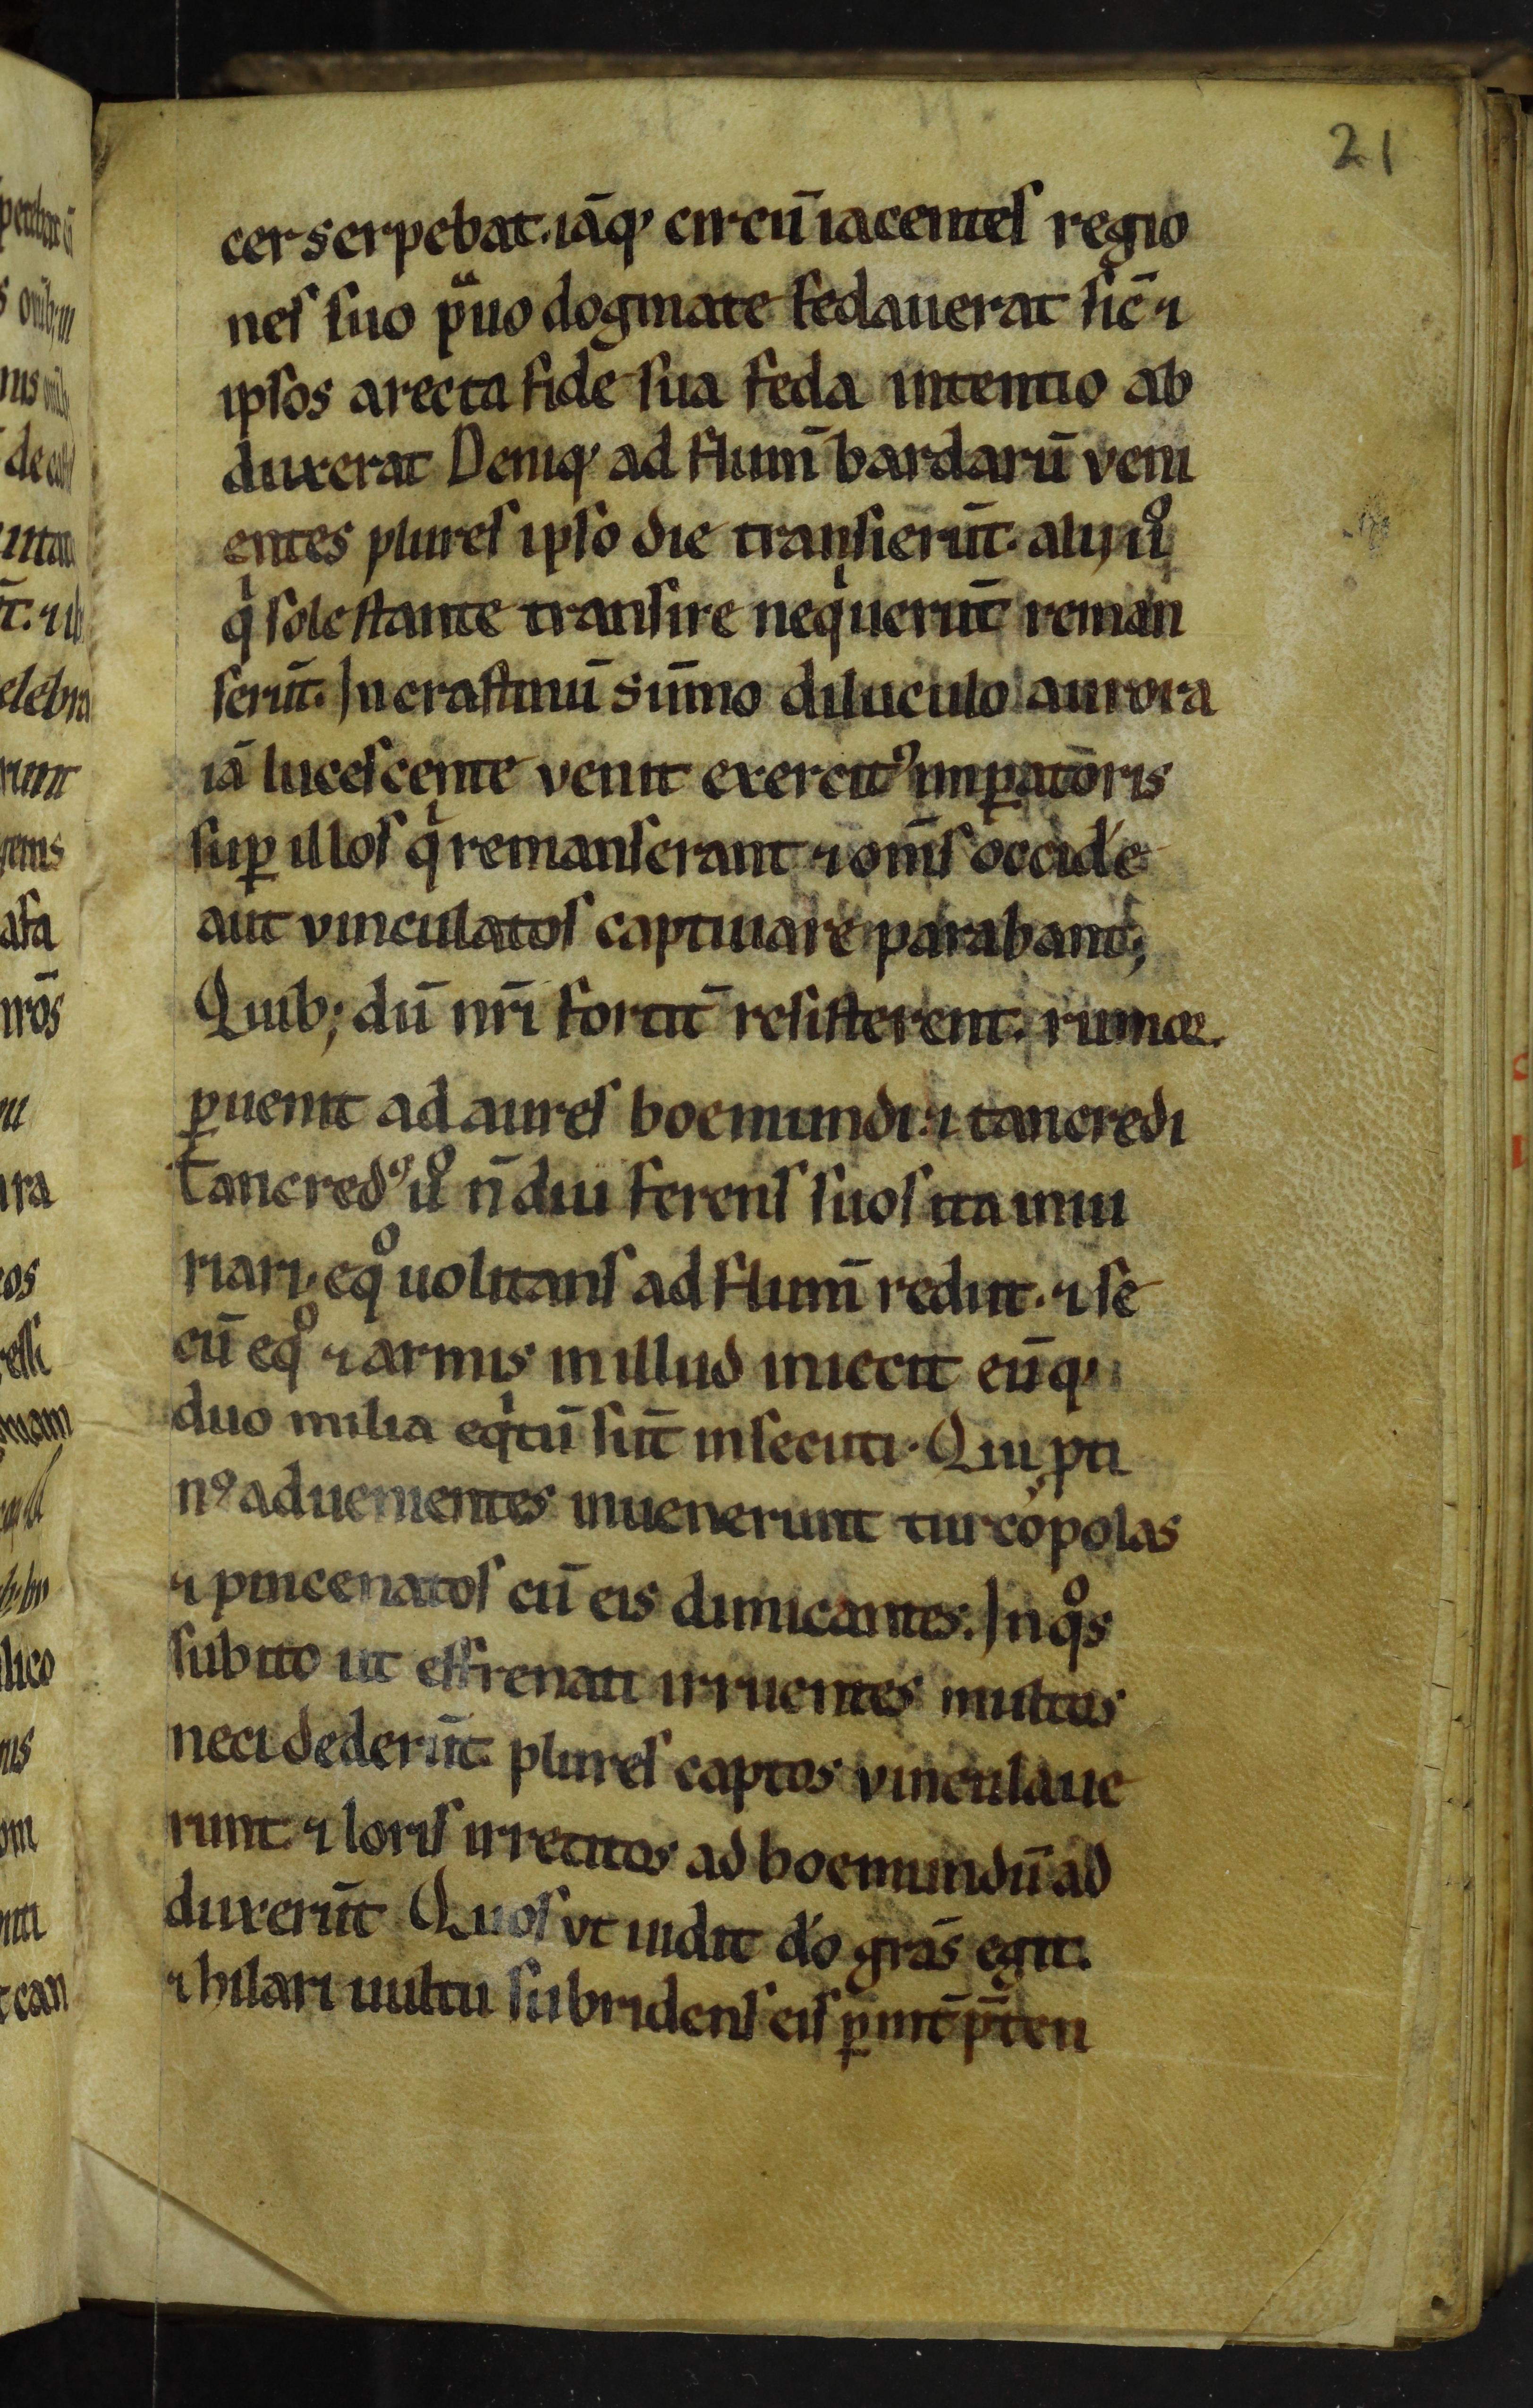 21
cer serpebat. iāq; circūiacentes regio
nes suo pͣuo dogmate fedauerat sic̄ ⁊
ipsos a recta fide sua feda intentio ab
duxerat Deniq; ad flum̄ bardarū veni
entes plures ipso die transierūt. alij ūͦ
qͥ sole stante transire neqͥuerūt reman
serūt. In crastinū sūmo diluculo aurora
iā lucescente venit exercitꝰ impatōris
suꝑ illos qͥ remanserant ⁊ om̄s occide
aut vinculatos captiuare parabant;
Quib; dū nr̄i fortit̄ resisterent. rumor
ꝑuenit ad aures boemundi. ⁊ tancredi
Tancredꝰ ūͦ n̄ diu ferens suos ita iniu
riari. eqͦ uolitans ad flum̄ rediit. ⁊ se
cū eqͦ ⁊ armis in illud iniecit eūq;
duo milia eqͥtū sūt insecuti. Qui ꝓti
nꝰ aduenientes inuenerunt turcopolas
⁊ pincenatos cū eis dimicantes. In qͦs
subito ut effrenati irruentes multos
neci dederūt. plures captos vinculaue
runt. ⁊ loris irretitos ad boemundū ad
duxerūt Quos vt uidit d̄o grās egit.
⁊ hilari uultu subridens eis ꝑ int̄p̄ten